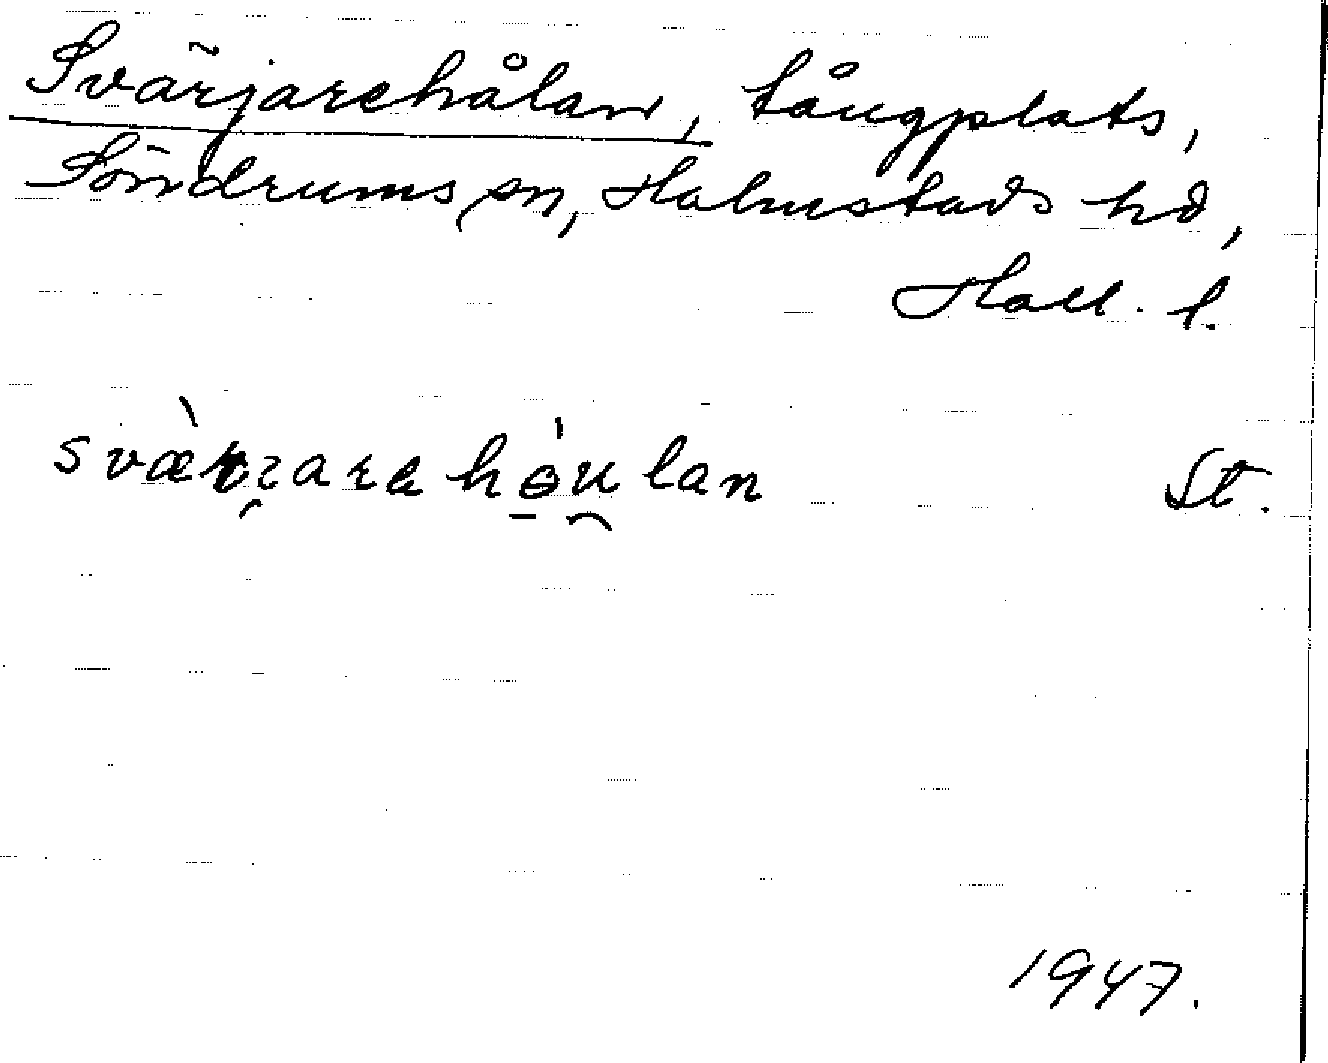 Svärjarehålan, tångplats,
Söndrums sn, Halmstads hd,
Hall. l.
St.
1947.